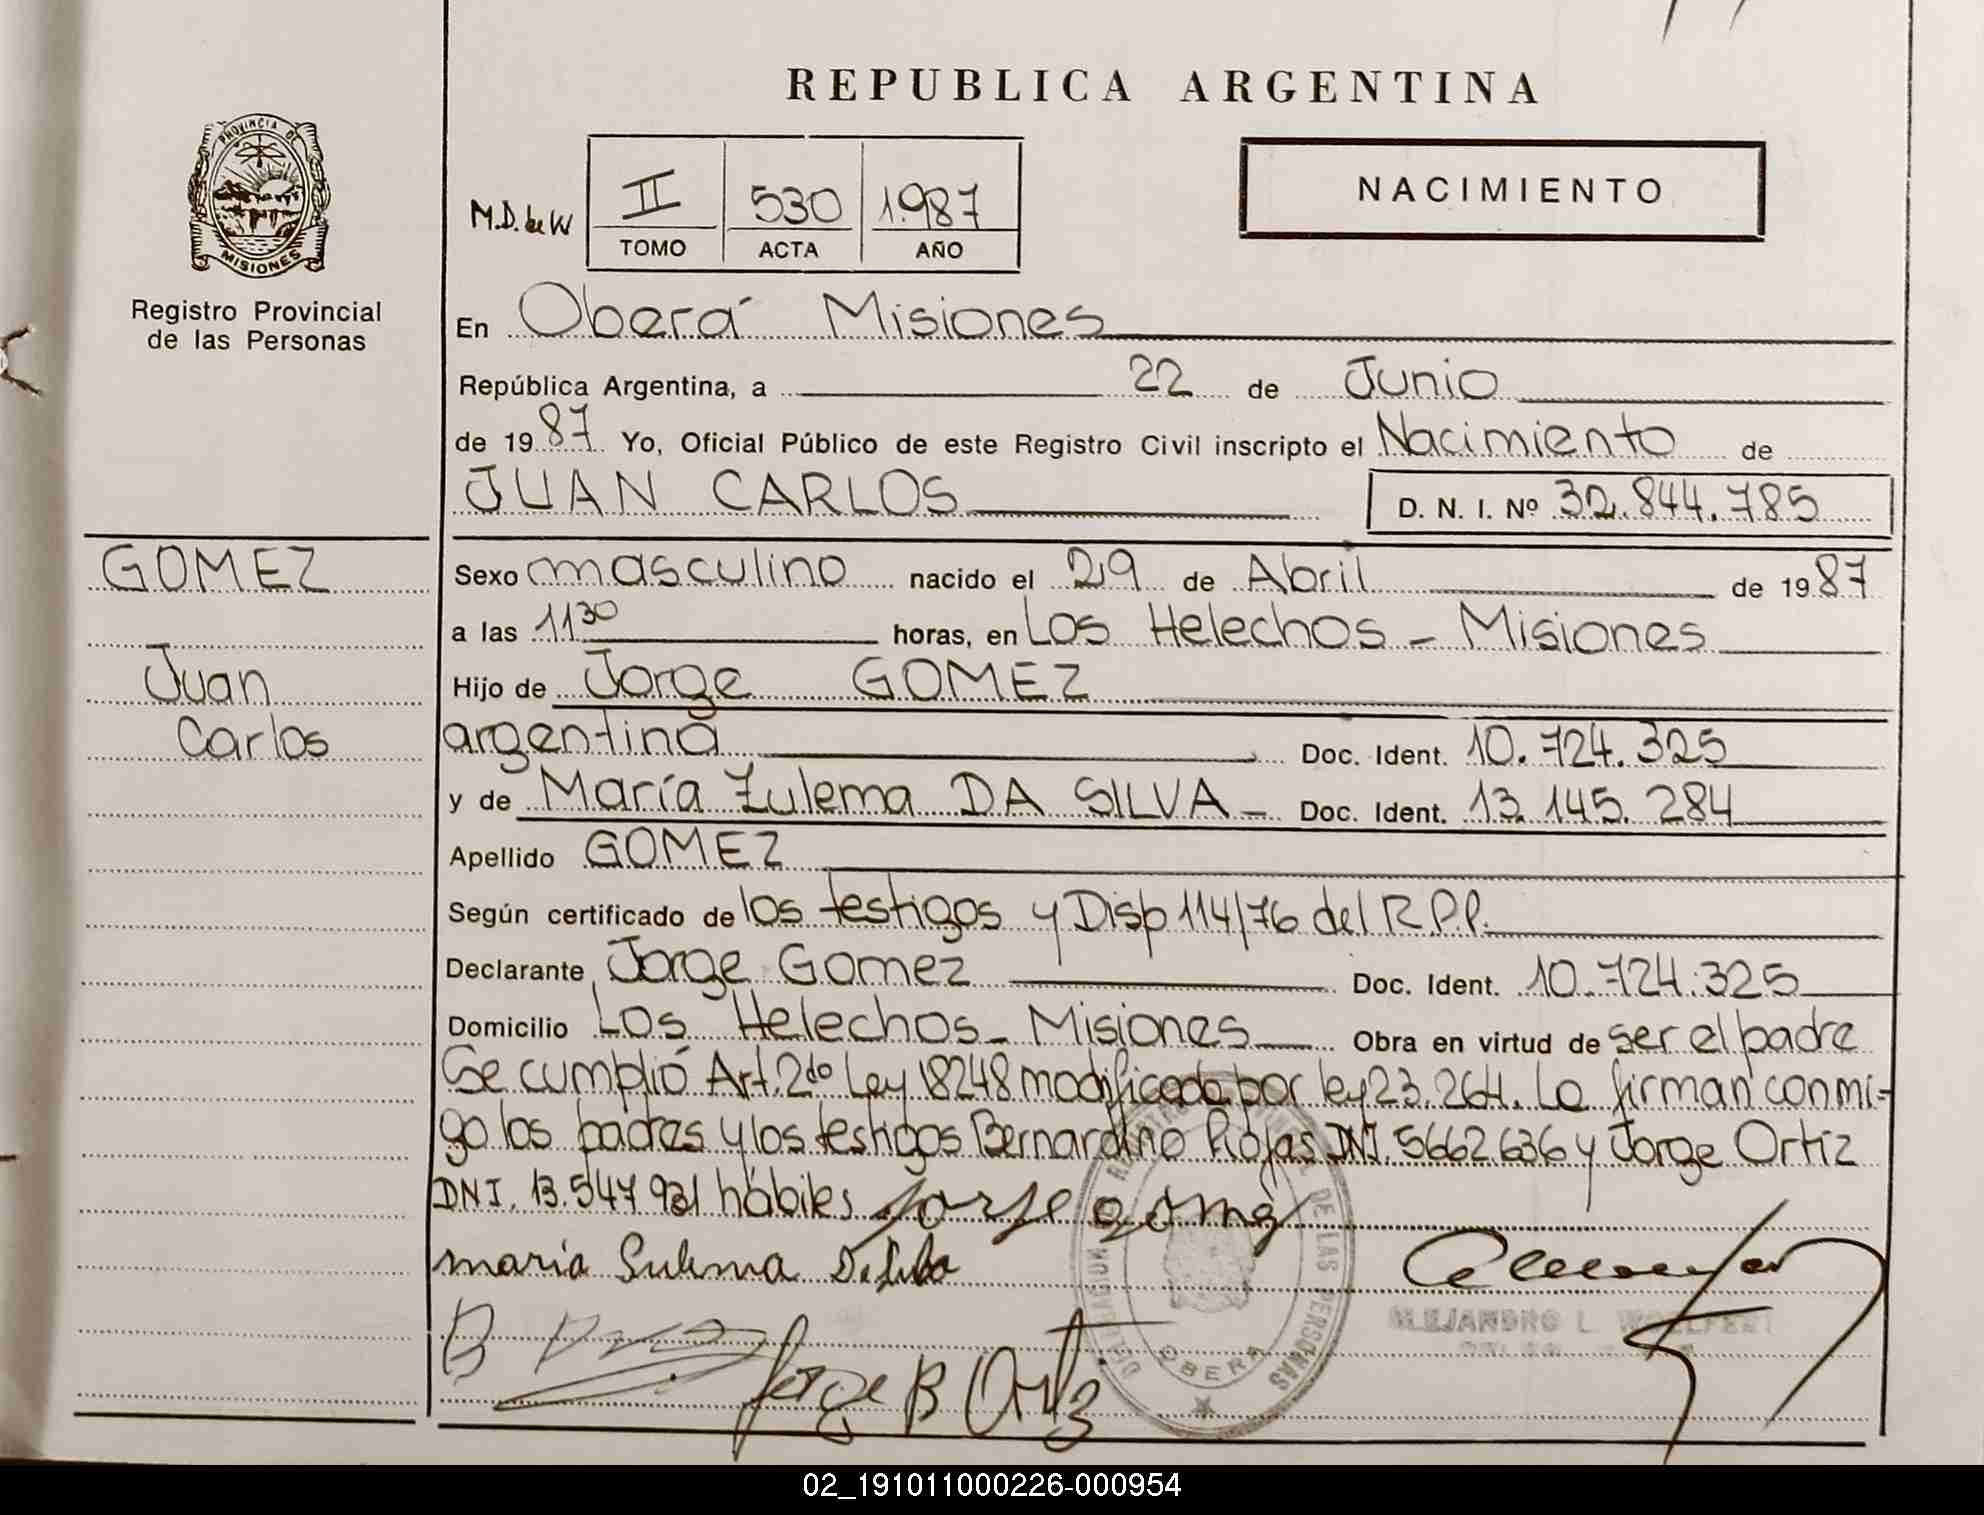 REPUBLICA ARGENTINA
PROVINCIA DE
MISIONES
Registro Provincial
de las Personas
M.D. de W
II 530 1.987
TOMO ACTA AÑO
NACIMIENTO
En Oberá Misiones
República Argentina, a 22 de Junio
de 1987 Yo, Oficial Público de este Registro Civil inscripto el Nacimiento de
JUAN CARLOS D. N. I. Nº 32.844.785
GOMEZ
Juan
Carlos
Sexo masculino nacido el 29 de Abril de 1987
a las 11 30 horas, en Los Helechos - Misiones
Hijo de Jorge GOMEZ
argentina Doc. Ident. 10.724.325
y de María Zulema DA SILVA - Doc. Ident. 13.145.284
Apellido GOMEZ
Según certificado de los testigos y Disp 114/76 del R.P.P.
Declarante Jorge Gomez Doc. Ident. 10.724.325
Domicilio Los Helechos - Misiones Obra en virtud de ser el padre
Se cumplió Art. 2do Ley 18248 modificada por ley 23.264. La firman conmi-
go los padres y los testigos Bernardino Rojas DNI. 5662636 y Jorge Ortiz
DNI. 13.547.931 hábiles Jorge gomez
maria Sulema
B
Jorge B Ortiz
DELEGACION
DE LAS PERSONAS
OBERA
ALEJANDRO L.
02_191011000226-000954